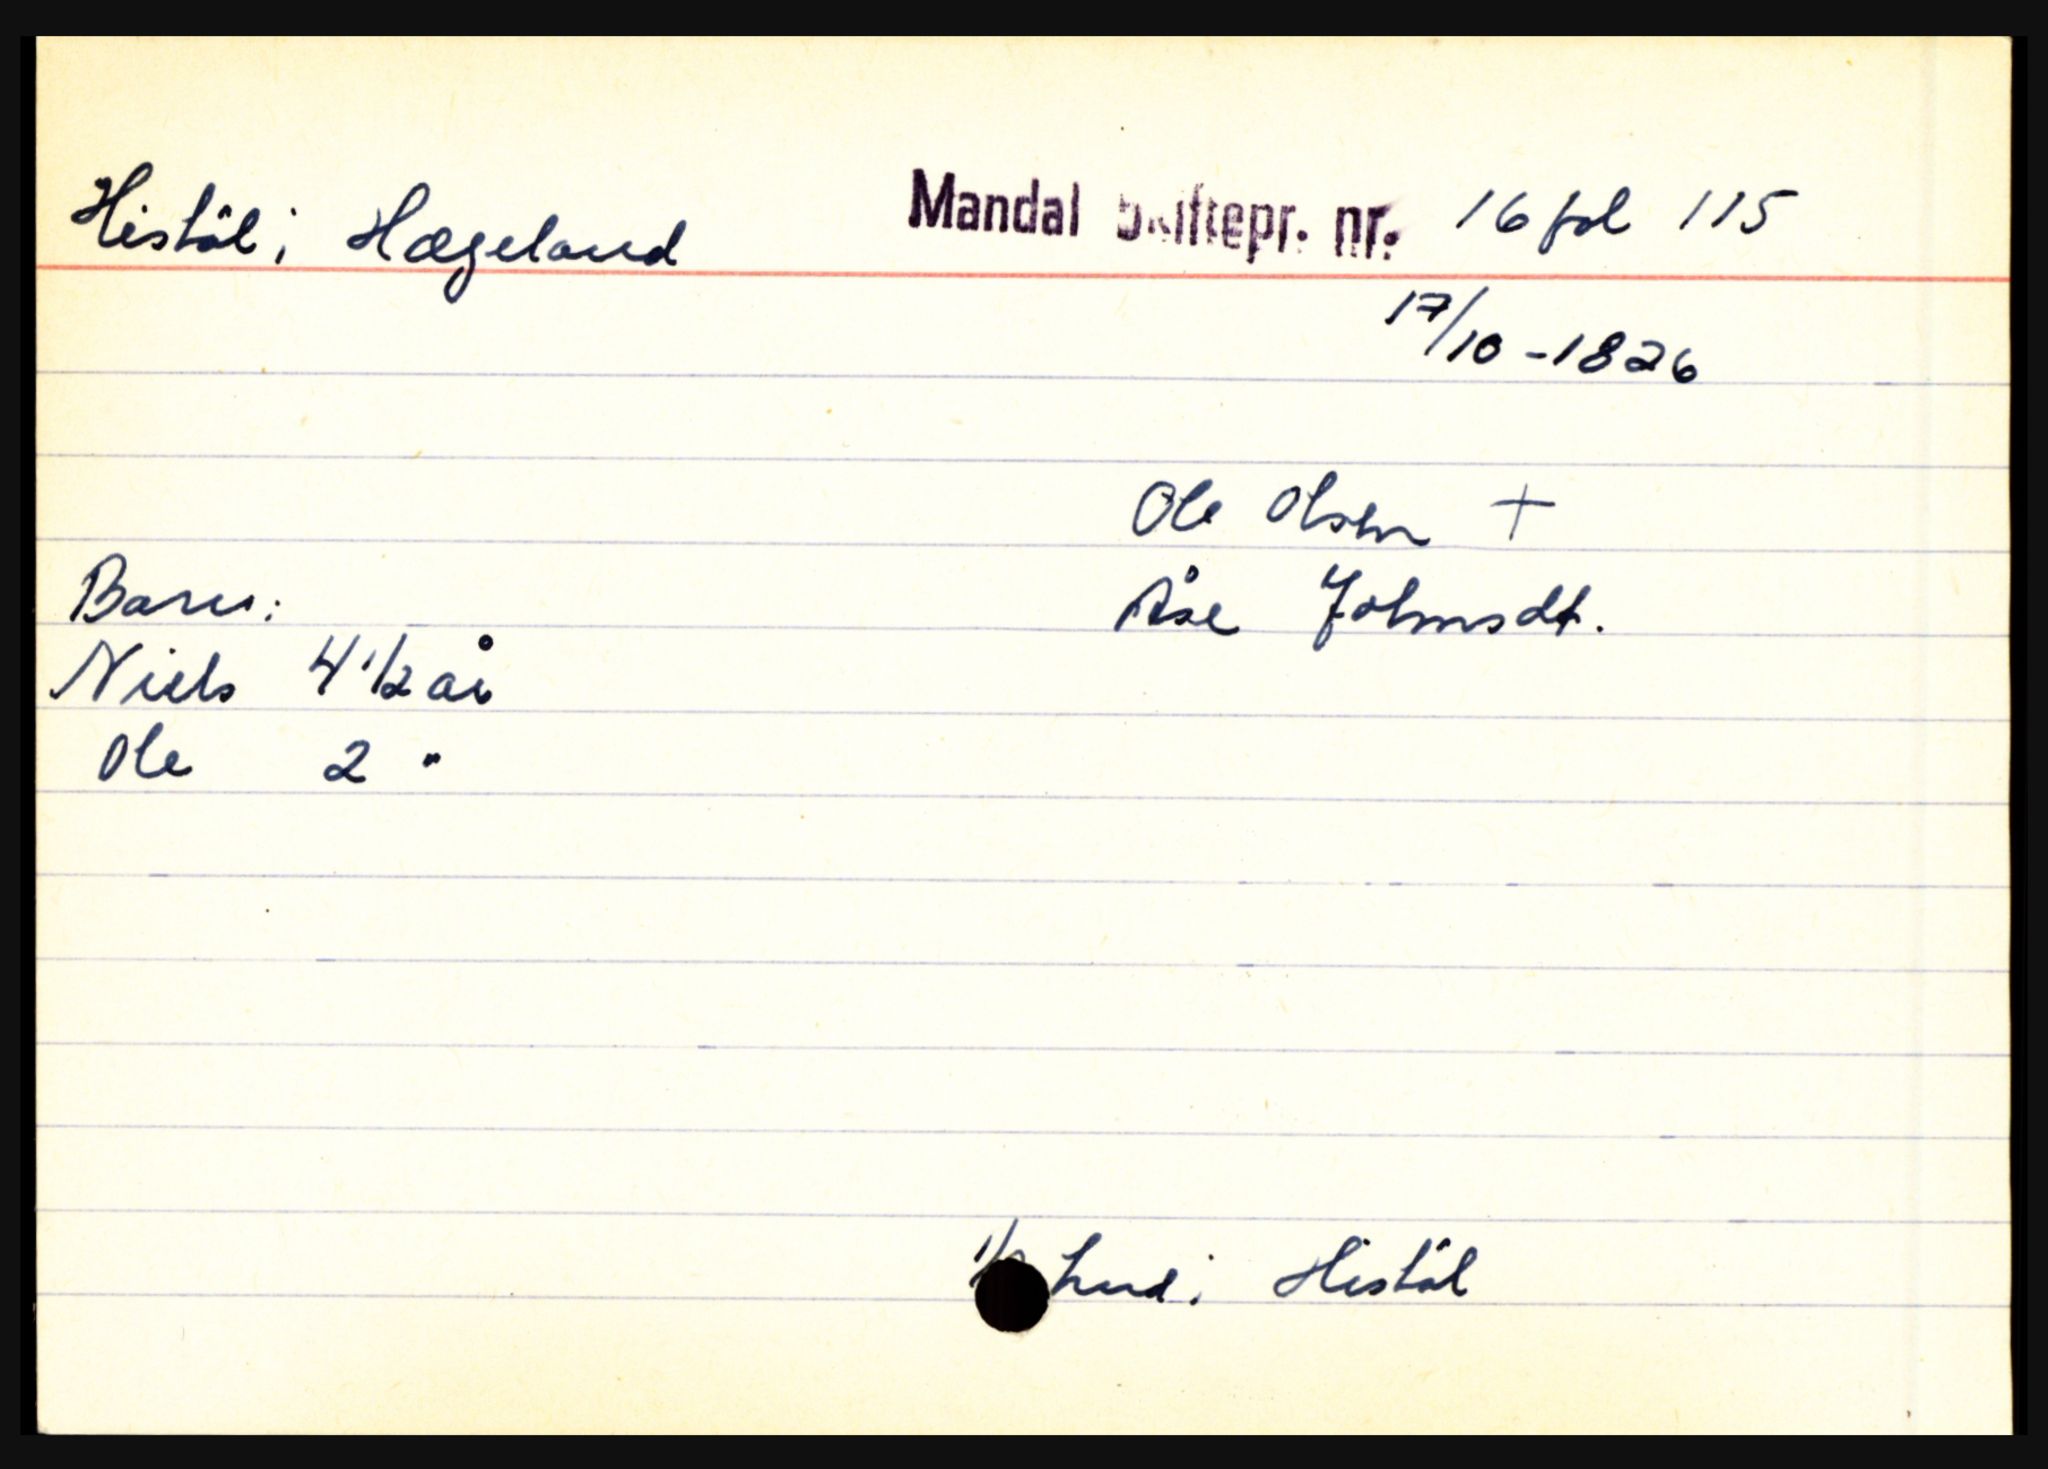 Histöl i Hægeland Mandal Skiftepr. nr. 16 fol 115
17/10 - 1826
Ole Olsen +
Barn: Åse Johnsdt.
Niels 4 1/2 år
Ole 2 "
hud i Histöl